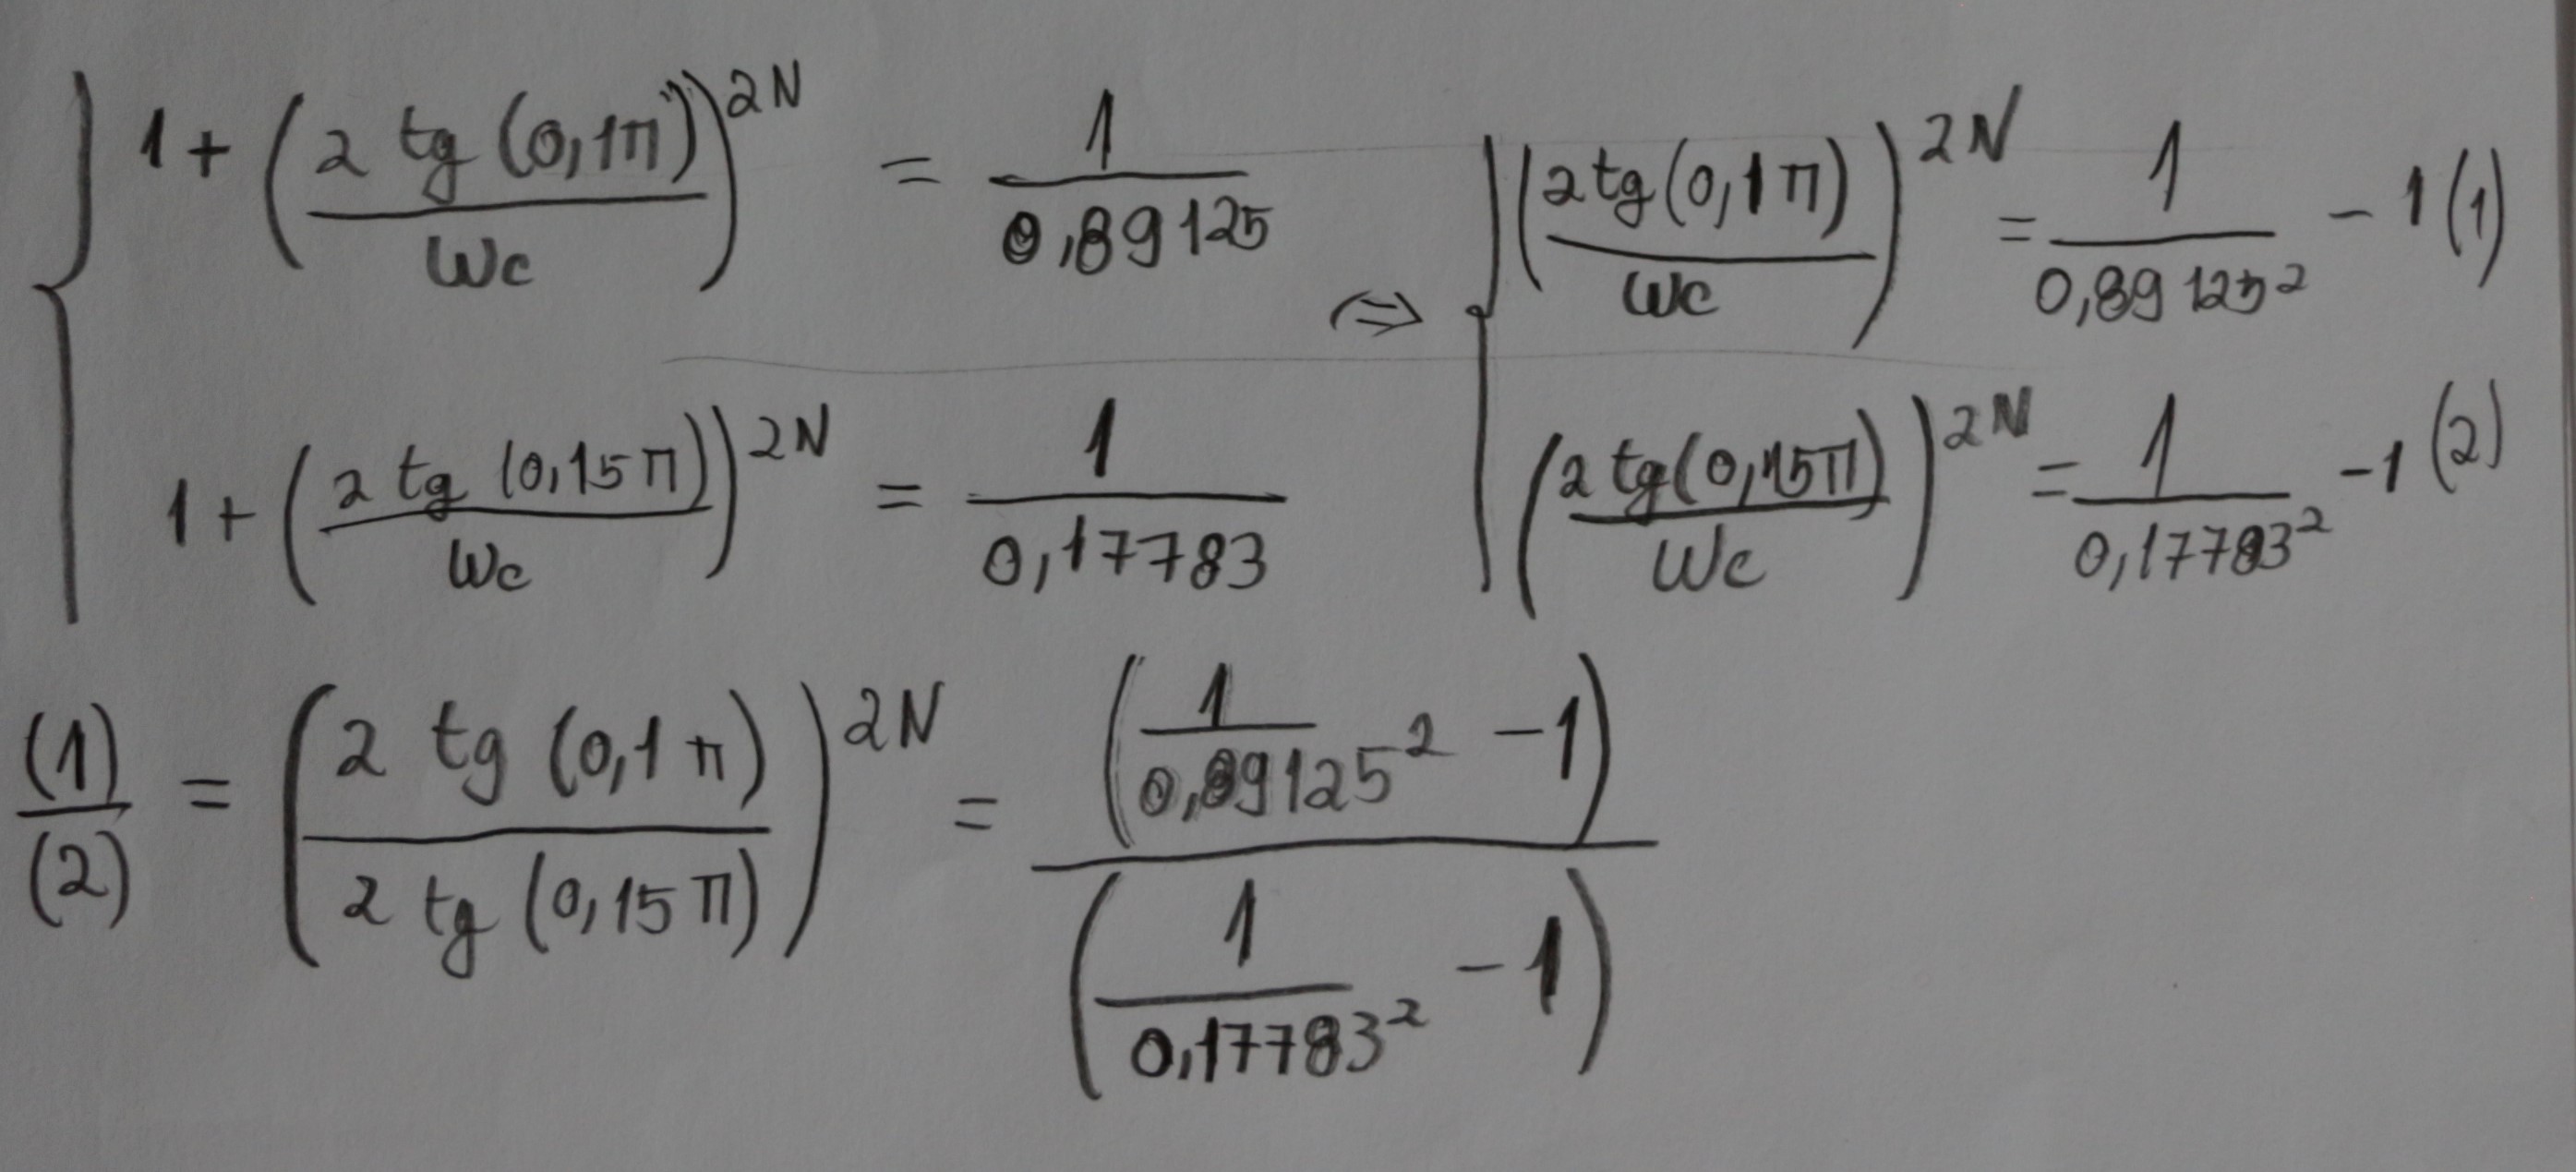 1 + (2 tg (0,1π) / Wc)^2N = 1 / 0,89125 ⇔ (2 tg (0,1π) / Wc)^2N = 1 / 0,89125² - 1 (1)
1 + (2 tg (0,15π) / Wc)^2N = 1 / 0,17783 (2 tg (0,15π) / Wc)^2N = 1 / 0,17783² - 1 (2)
(1) / (2) = (2 tg (0,1π) / 2 tg (0,15π))^2N = (1 / 0,89125² - 1) / (1 / 0,17783² - 1)